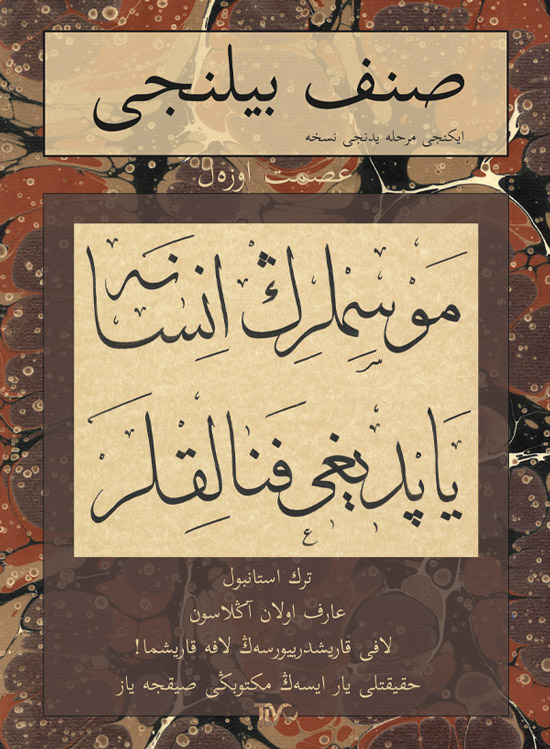 صنف بیلنجی
ایکنجی مرحله یدنجی نسخه
عصمت اوزەل
موسملرڭ انسانه
یاپدیغی فنالقلر
ترك استانبول
عارف اولان آڭلاسون
لافی قاریشدرییورسەڭ لافه قاریشما!
حقیقتلی یار ایسەڭ مکتوبڭی صیقجه یاز
TİYO